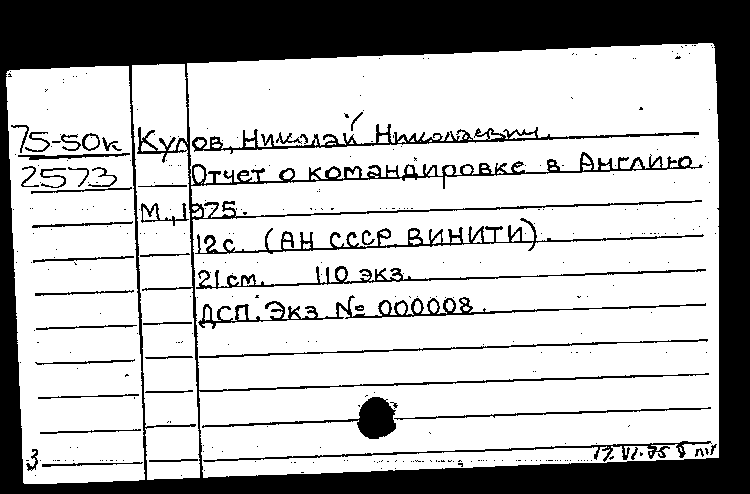 75-50к Кулов, Николай Николаевич.
2573 Отчет о командировке в Англию.
М., 1975.
12с. (АН СССР. ВИНИТИ).
21см. 110 экз.
ДСП. Экз № 000008.
3 17.VI.75